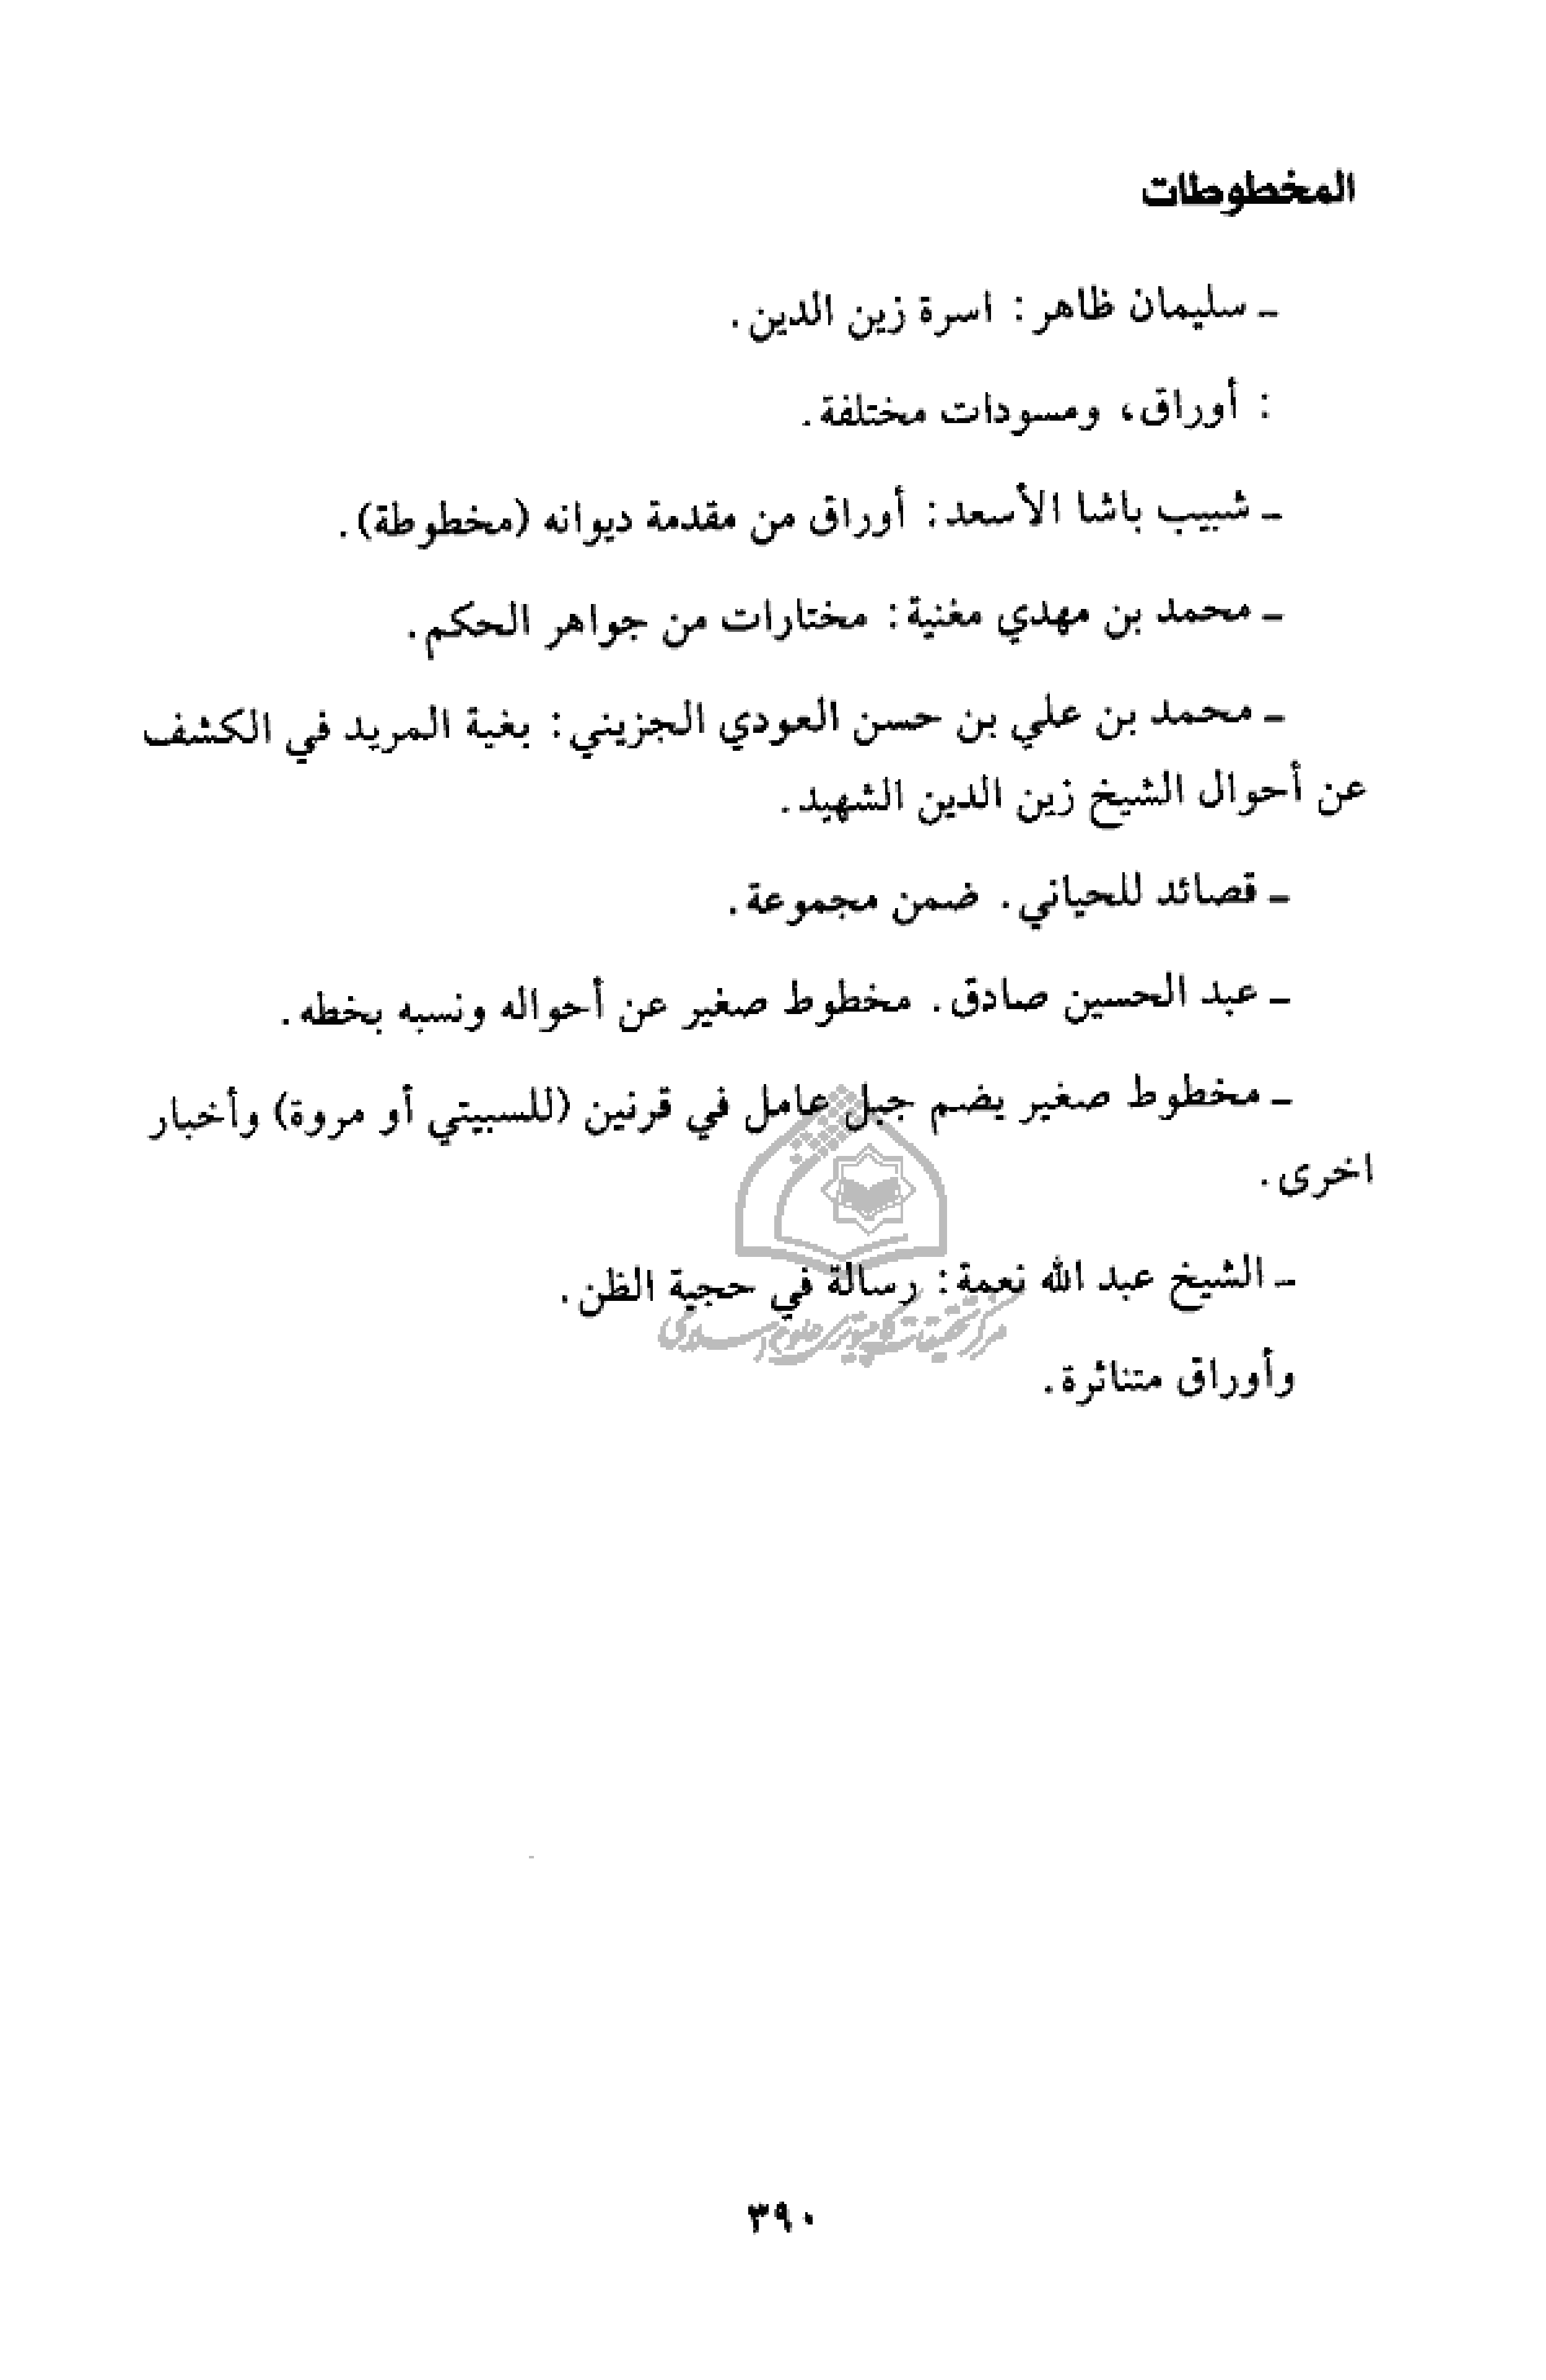 المخطوطات
ـ سليمان ظاهر: اسرة زين الدين.
: أوراق، ومسودات مختلفة.
ـ شبيب باشا الأسعد: أوراق من مقدمة ديوانه (مخطوطة).
ـ محمد بن مهدي مغنية: مختارات من جواهر الحكم.
ـ محمد بن علي بن حسن العودي الجزيني: بغية المريد في الكشف
عن أحوال الشيخ زين الدين الشهيد.
ـ قصائد للحياني. ضمن مجموعة.
ـ عبد الحسين صادق. مخطوط صغير عن أحواله ونسبه بخطه.
ـ مخطوط صغير يضم جبل عامل في قرنين (للسبيتي أو مروة) وأخبار
اخرى.
ـ الشيخ عبد الله نعمة: رسالة في حجية الظن.
مركز تحقیقات کامپیوتری علوم اسلامی
وأوراق متناثرة.
٣٩٠